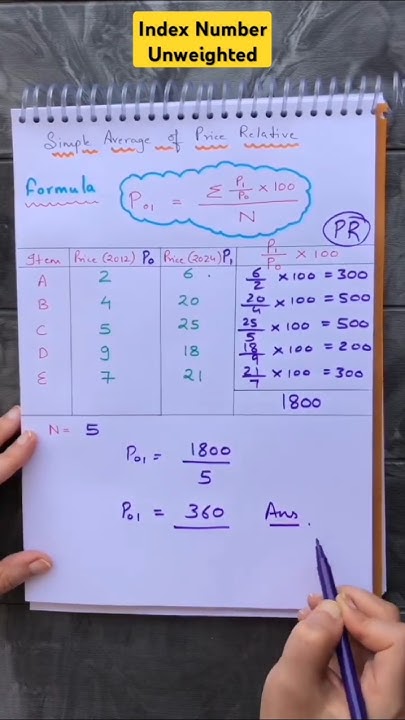 Index Number
Unweighted
Simple Average of Price Relative
Formula
P₀₁ = Σ P₁/P₀ × 100 / N
PR
Item Price (2012) P₀ Price (2024) P₁ P₁/P₀ × 100
A 2 6 . 6/2 × 100 = 300
B 4 20 20/4 × 100 = 500
C 5 25 25/5 × 100 = 500
D 9 18 18/9 × 100 = 200
E 7 21 21/7 × 100 = 300
1800
N = 5
P₀₁ = 1800/5
P₀₁ = 360 Ans.